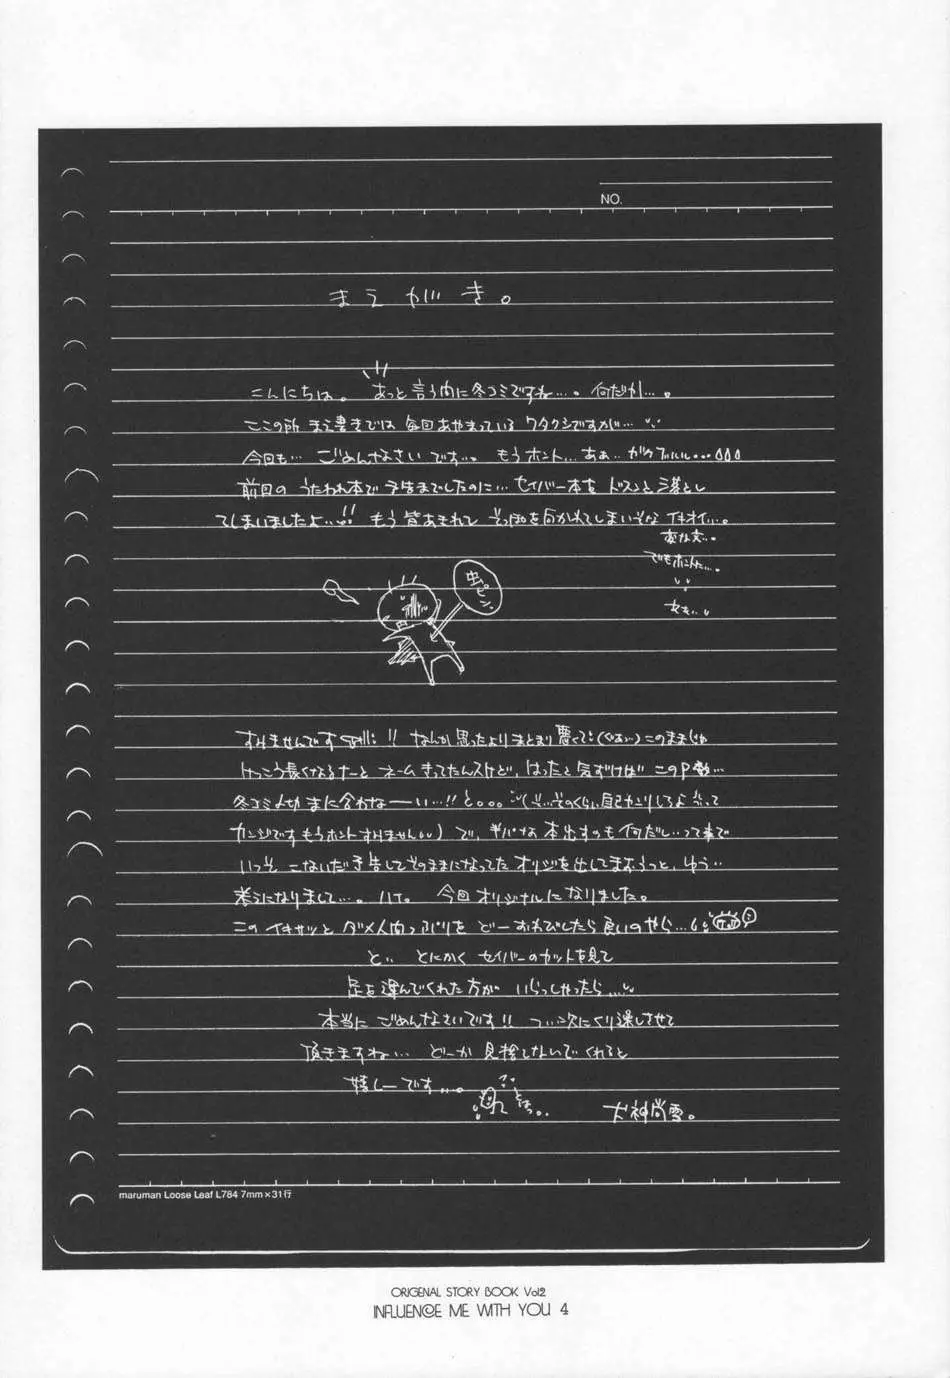 NO.
まえがき。
こんにちは。あっと言う内に冬コミですね…。何だか…。
ここの所 まえ書きでは 毎回あやまっている ワタクシですが…
今回も… ごめんなさい です… もうホント…あぁ…ガクブルルル…
前回の うたわれ本で 予告までしたのに…セイバー本を ドスンと落とし
てしまいましたよ…!! もう皆あきれて そっぽを向かれてしまいそな イキオイ…。
変な文…。
でもホント…
虫ピン
すみませんです !! なんか思ったよりまとまり悪くて (ぐあ…) このままじゃ
けっこう長くなるナーと ネームきってたんスけど、はったと気ずけば このP数…
冬コミ〆切 まに合わなーい…!! と。。。 (そ…そのくらい自己カンリしろよ って
カンジです もうホント すみません) で、半パな 本出すのも 何だし…って事で
いっそ こないだ予告してそのままになってた オリジを出してまおうっと、ゆう
考えになりまして…。ハイ。 今回オリジナルになりました。
この イキサツと ダメ人間っぷりを どーおわびしたら 良いのやら…
と、 とにかく セイバーのカットを見て
足を運んでくれた方が いらっしゃったら…
本当に ごめんなさいです!! つ、次にくり越しさせて
頂きますね… どーか 見捨てないでくれると
嬉しーです…。
犬神尚雪。
maruman Loose Leaf L784 7mm×31行
ORIGENAL STORY BOOK Vol2
INFLUENCE ME WITH YOU 4